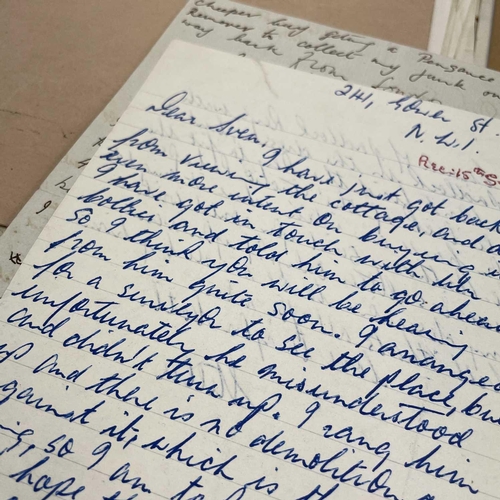 cheaper buy getting a Penzance
Remover to collect my junk on
way back from London
241, Gower St
N.W.1.
Rec: 15th S
Dear Sven, I have just got back
from viewing the cottage and
even more intent on buying
I have got in touch with
and told him to go ahead
so I think you will be hearing
from him quite soon. I arranged
for a surveyor to see the place, but
unfortunately he misunderstood
and didn't turn up. I rang him
up and there is no demolition
against it, which is
so I am to
hope